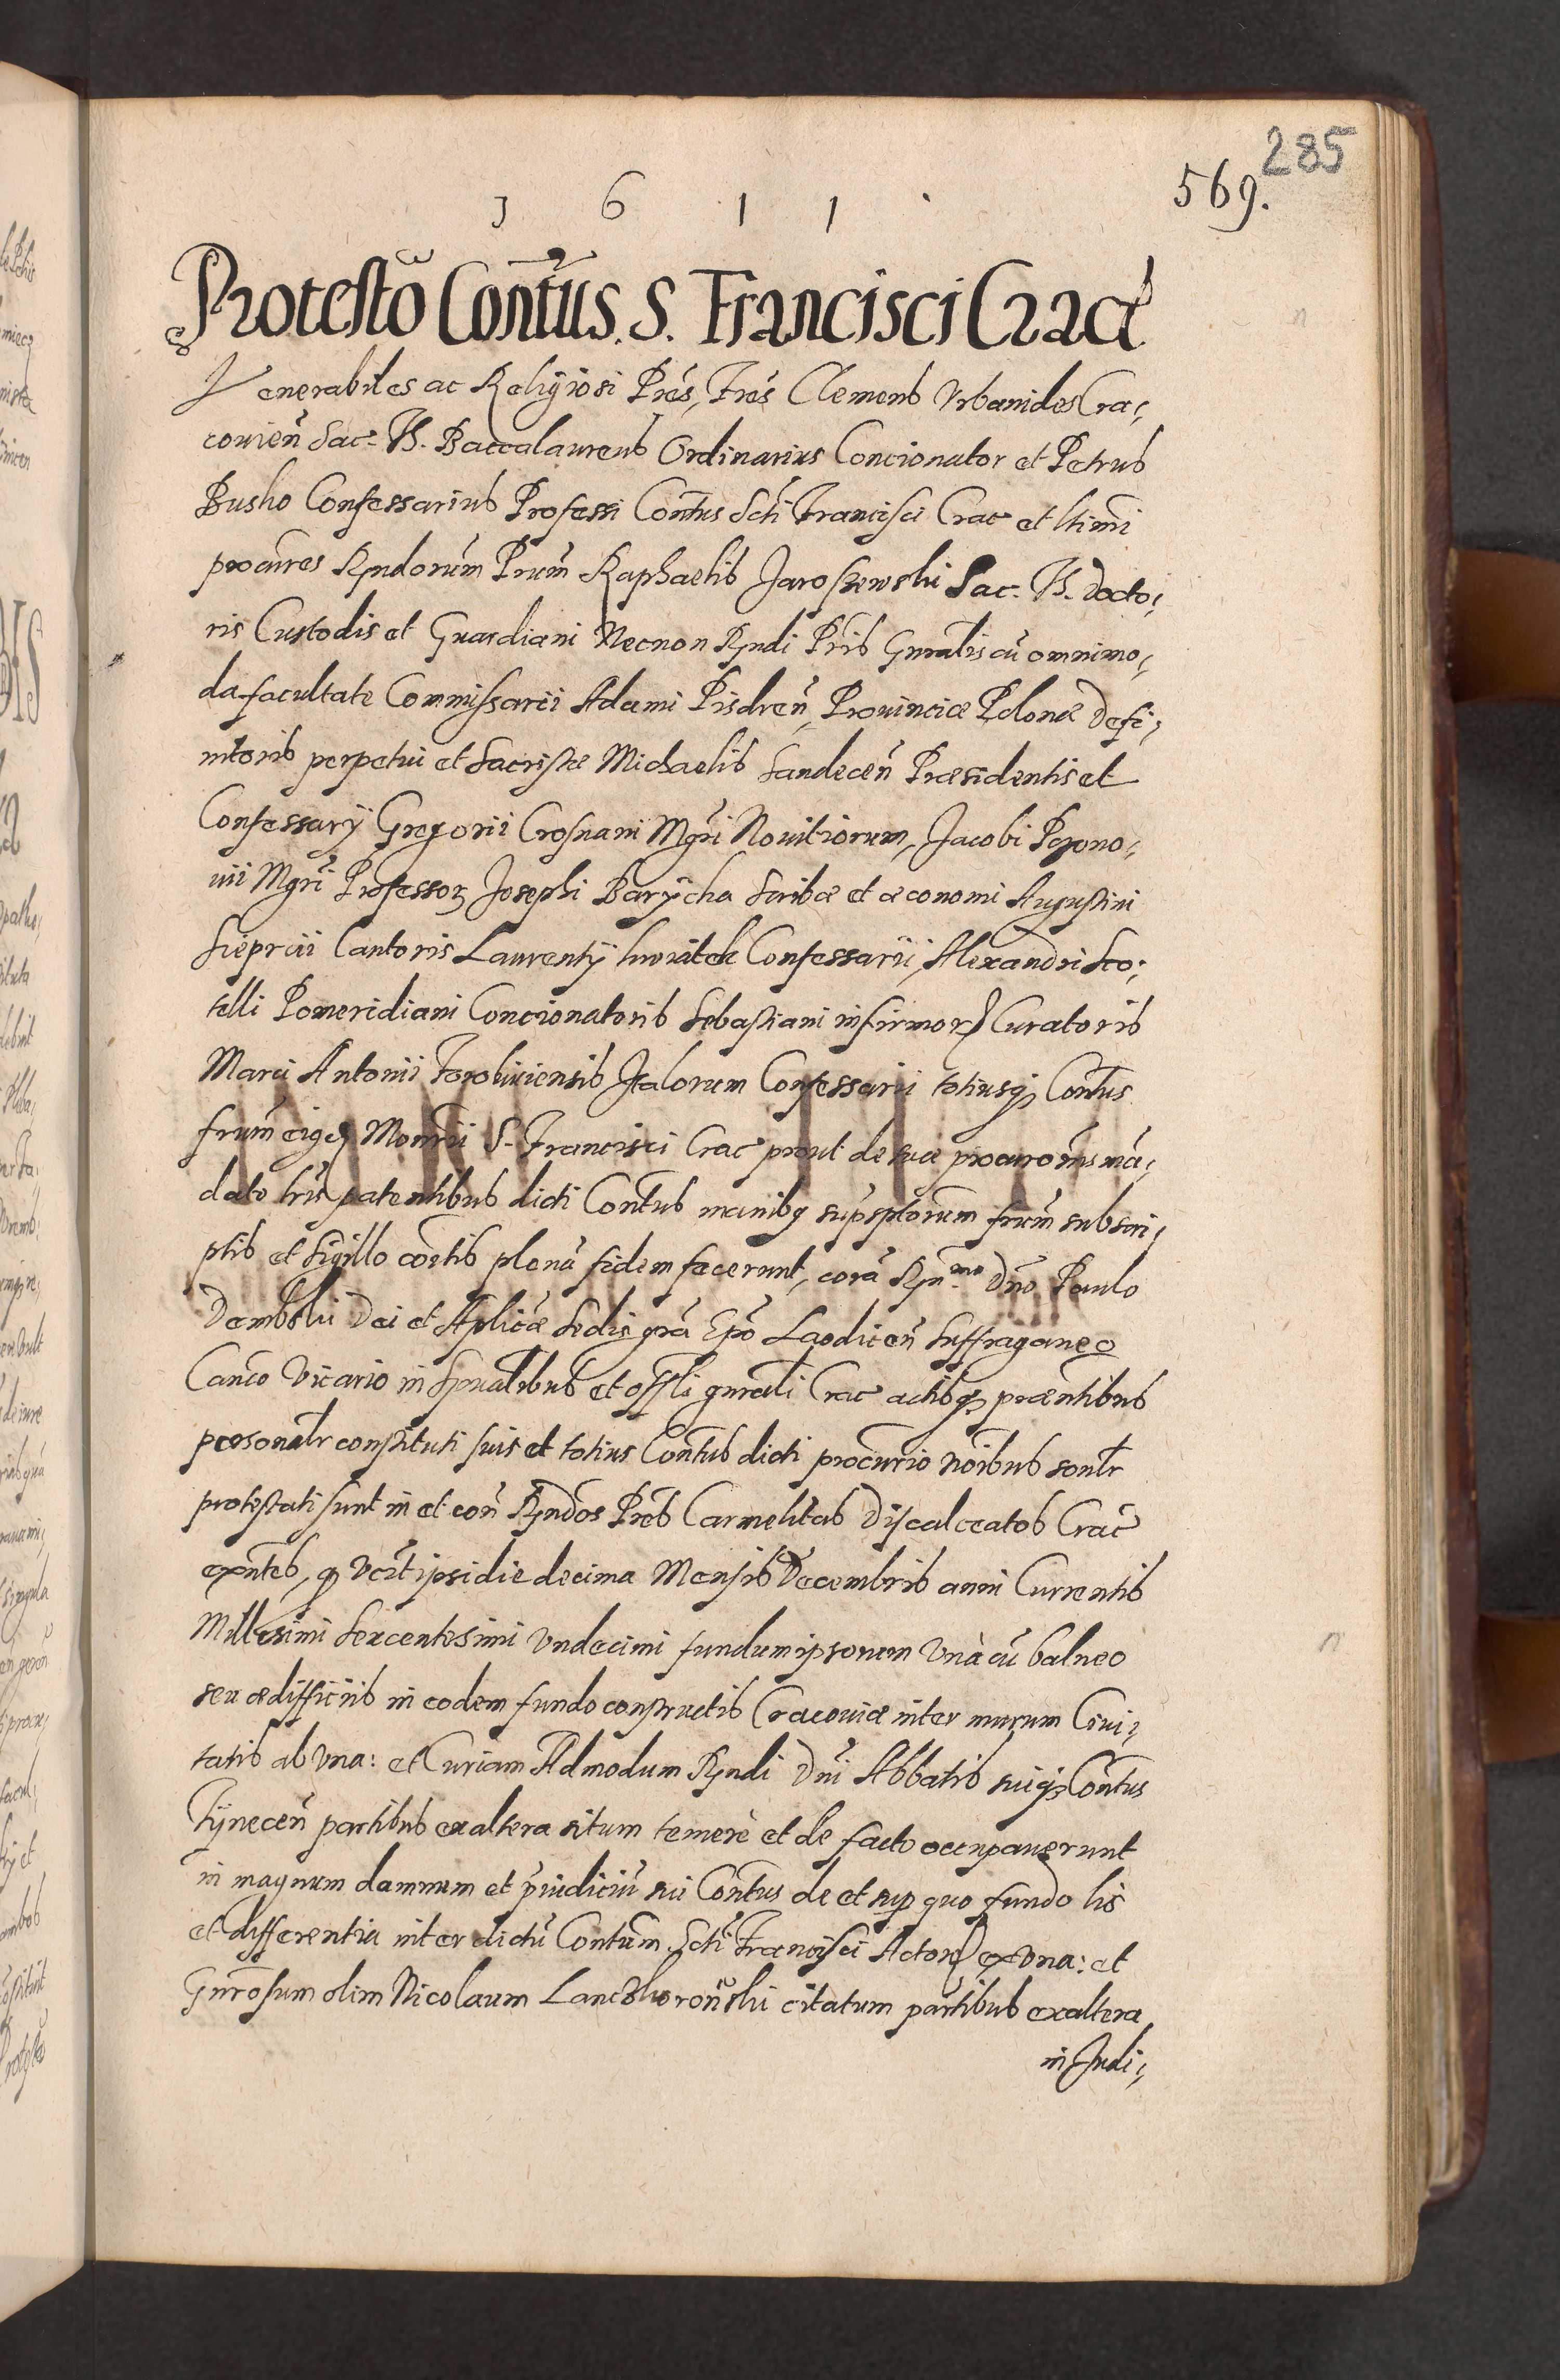 285
569.
1 6 1 1
Protestō Contūs. S. Francisci Crac̄
Venerabiles ac Religiosi Prēs, Frēs Clemens Vrbanides Cra,
couien̄ Sac. Th. Baccalaureus Ordinarius Concionator et Petrus
Busko Confessarius Professi Contūs Scti Francisci Crac̄ et ltimi
procūres Rndorum Prum Raphaelis Jaroszewski Sac. Th. docto,
ris Custodis et Guardiani Necnon Rndi Pris Gnralis cū omnimo,
da facultate Commissarii Adami Pisdren̄, Prouinciæ Polonæ Defi,
nitoris perpetui et Sacristæ Michaelis Sandecen̄ Præsidentis et
Confessarÿ Gregorii Crosnani Mgri Nouitiorum, Jacobi Pozno,
uii Mgri Professor Josephi Barÿcha Scribæ et œconomi Augustini
Sieprcii Cantoris Laurentÿ kwiatek Confessarii, Alexandri Sco,
telli Pomeridiani Concionatoris Sebastiani infirmor Curatoris
Marci Antonii Foroliuiensis Italorum Confessarii totiusq; Contūs
frum eiusd Monrii S. Francisci Crac̄ prout de suæ procuronis mā,
dato lris patentibus dicti Contūs manibq supsptorum frum subscri,
ptis et Sigillo cōtis plenā fidem fecerunt, corā Rn.mo Dno Paulo
Dembski Dei et Aplicæ Sedis grā Epō Laodicen̄ Suffraganeo
Canco Vicario in Spualibus et offli gnrali Crac̄ actisq; præntibus
personalr constituti suis et totius Contūs dicti procurio nōibus sonlr
protestati sunt in et con̄ Rndos Pres Carmelitas Discalceatos Crac̄
exntes, q Vent ipsi die decima Mensis Decembris anni Currentis
Millesimi Sexcentesimi Vndecimi fundum ipsorum Vnà cū balneo
seu ædifficiis in eodem fundo constructis Cracouiæ inter murum Ciui,
tatis ab Vna: et Curiam Admodum Rndi Dni Abbatis suiq; Contūs
Tÿnecen̄ partibus ex altera situm temerè et de facto occupauerunt
in magnum damnum et p̄iudiciū sui Contūs de et sup quo fundo lis
et differentia inter dictū Contum Scti Francisci Actor ex Vna: et
Gnrosum olim Nicolaum Lanczkoronski citatum partibus ex altera
in Judi,